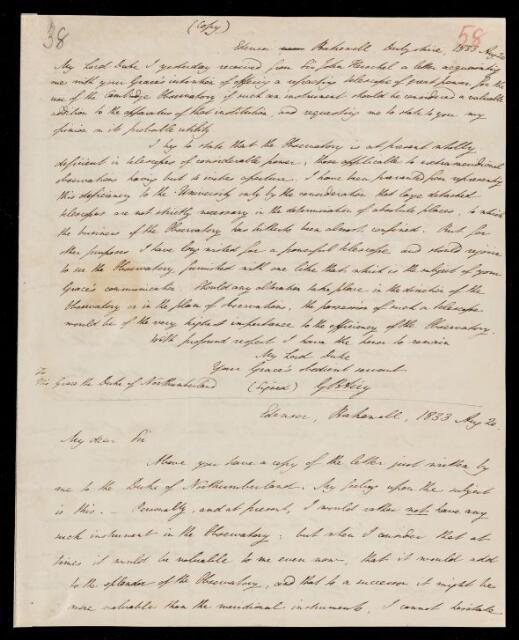 38
(Copy)
58
Edensor near Bakewell Derbyshire, 1833 Aug 20
My Lord Duke I yesterday received from Sir John Herschel a letter acquainting
me with your Grace's intention of offering a refracting telescope of great power, for the
use of the Cambridge Observatory if such an instrument should be considered a valuable
addition to the apparatus of that institution, and requesting me to state to you my
opinion on its probable utility
I beg to state that the Observatory is at present wholly
deficient in telescopes of considerable power, those applicable to extrameridional
observations having but inches aperture. I have been prevented from representing
this deficiency to the University only by the consideration that large detached
telescopes are not strictly necessary in the determination of absolute places, to which
the business of the Observatory has hitherto been almost confined. But for
other purposes I have long wished for a powerful telescope and should rejoice
to see the Observatory furnished with one like that which is the subject of your
Grace's communication. Should any alteration take place in the direction of the
Observatory or in the plan of observations, the possession of such a telescope
would be of the very highest importance to the efficiency of the Observatory.
With profound respect I have the honor to remain
My Lord Duke
Your Grace's obedient servant
To
His Grace the Duke of Northumberland
(Signed) G B Airy
Edensor, Bakewell, 1833 Aug 20.
My dear Sir
Above you have a copy of the letter just written by
me to the Duke of Northumberland. My feeling upon the subject
is this. – Personally, and at present, I would rather not have any
such instrument in the Observatory: but when I consider that at
times it would be valuable to me even now, that it would add
to the splendor of the Observatory, and that to a successor it might be
more valuable than the meridional instruments, I cannot hesitate